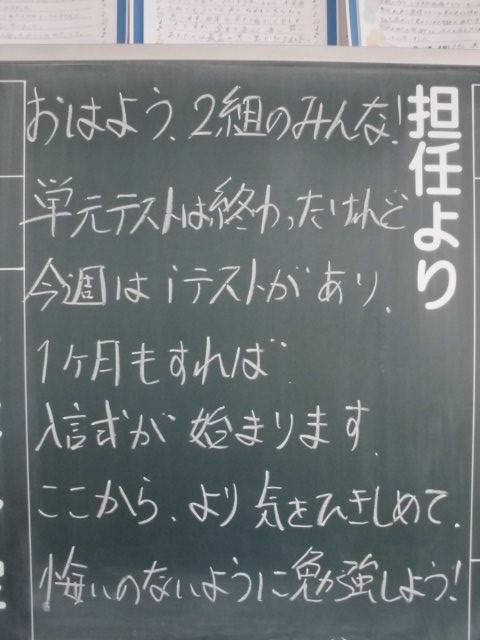 担任より
おはよう、2組のみんな!
単元テストは終わったけれど
今週はiテストがあり、
1ヶ月もすれば
入試が始まります。
ここから、より気をひきしめて、
悔いのないように勉強しよう!